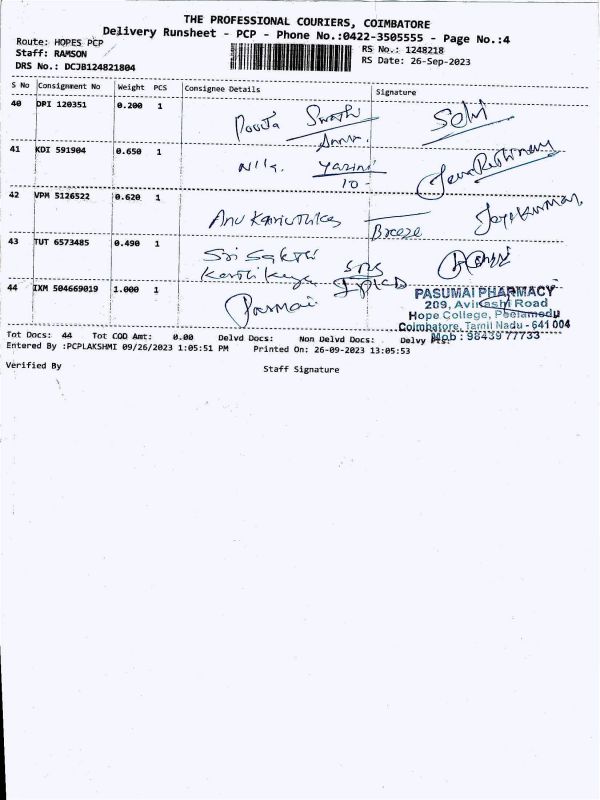 THE PROFESSIONAL COURIERS, COIMBATORE
Delivery Runsheet - PCP - Phone No.:0422-3505555 - Page No.:4
Route: HOPES PCP
RS No.: 1248218
Staff: RAMSON
RS Date: 26-Sep-2023
DRS No.: DCJB124821804
S No Consignment No Weight PCS Consignee Details Signature
40 DPI 120351 0.200 1 Pooja Swathi Selvi
41 KDI 591904 0.650 1 Nila. Yazini
10-
42 VPM 5126522 0.620 1 Breeze Jayakumar
43 TUT 6573485 0.490 1 Sri Sakthi
Karthikeya
44 IXM 504669019 1.000 1 Pasumai
PASUMAI PHARMACY
209, Avinashi Road
Hope College, Peelamedu
Coimbatore, Tamil Nadu - 641 004
Mob : 98439 77733
Tot Docs: 44 Tot COD Amt: 0.00 Delvd Docs: Non Delvd Docs: Delvy Pts:
Entered By :PCPLAKSHMI 09/26/2023 1:05:51 PM Printed On: 26-09-2023 13:05:53
Verified By Staff Signature